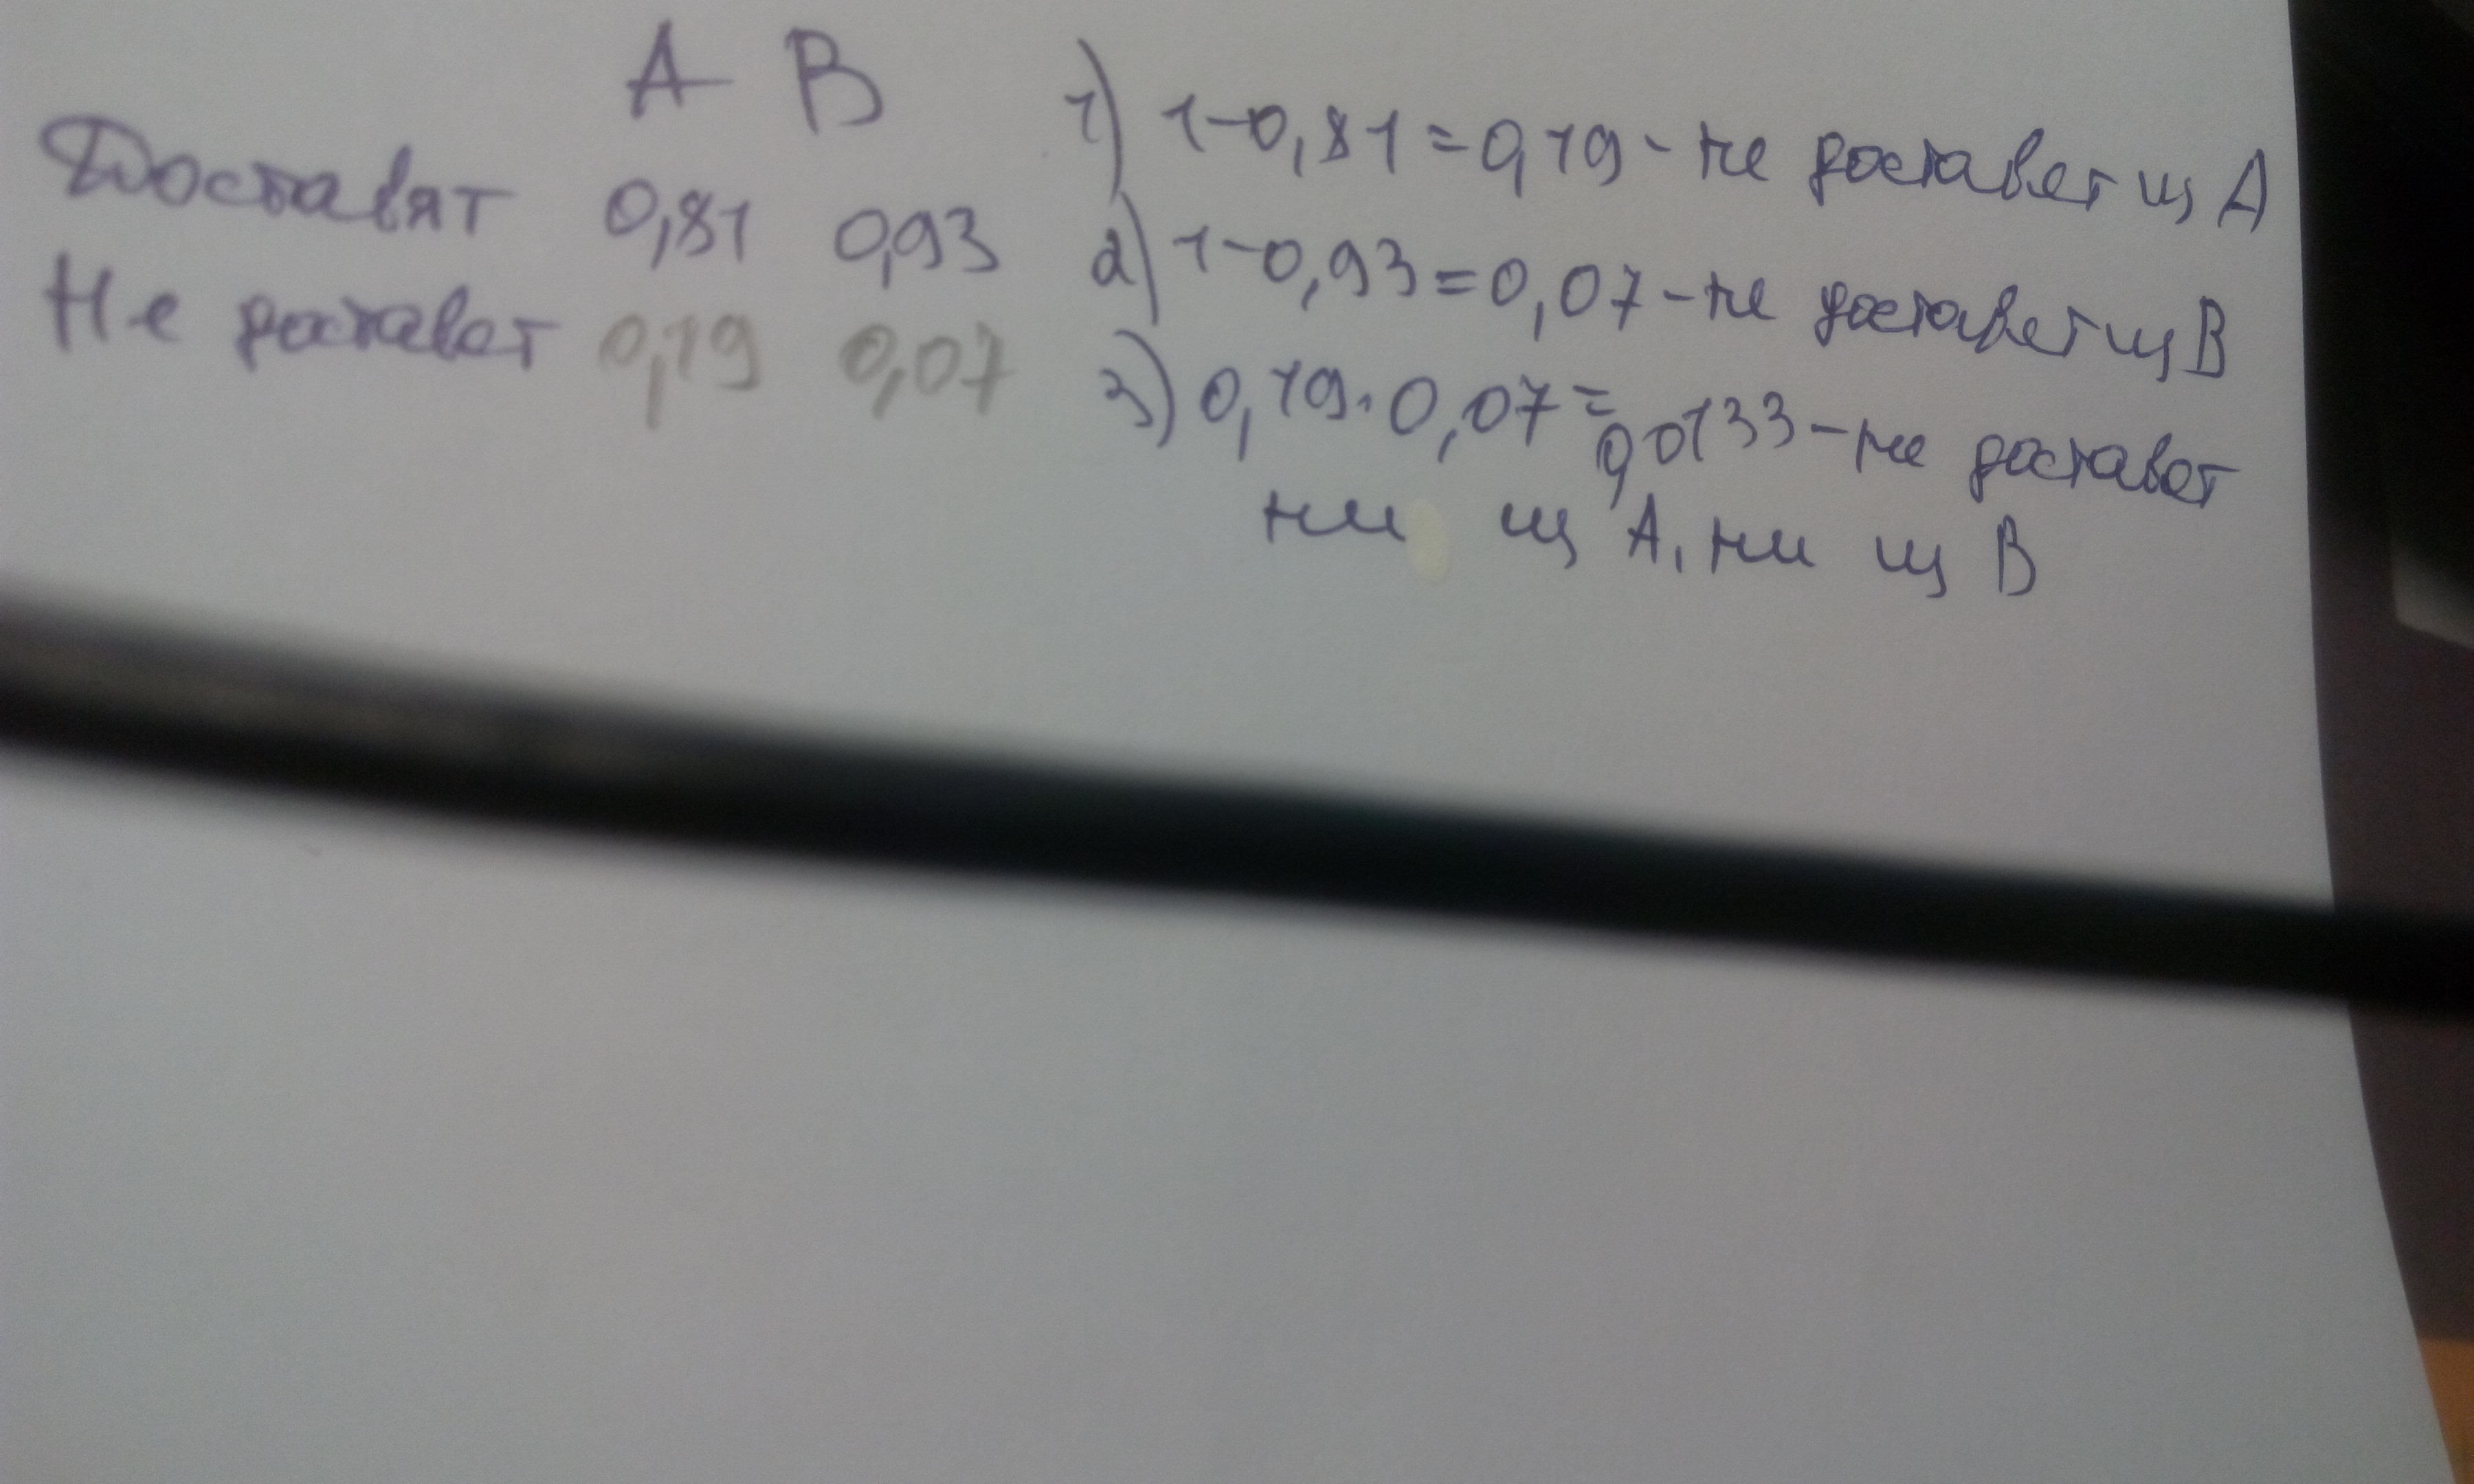 А В
Доставят 0,81 0,93
Не доставет 0,19 0,07
1) 1-0,81=0,19 - не доставет из А
2) 1-0,93=0,07-не доставет из В
3) 0,19·0,07=0,0133-не доставет
ни из А, ни из В